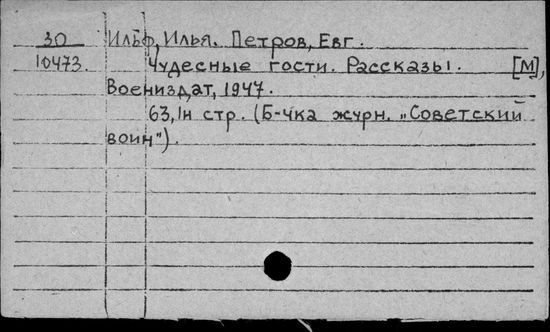 30 Ильф, Илья. Петров, Евг.
10473. Чудесные гости. Рассказы. [М],
Воениздат, 1947.
63, 1н стр. (Б-чка журн. „Советский
воин").